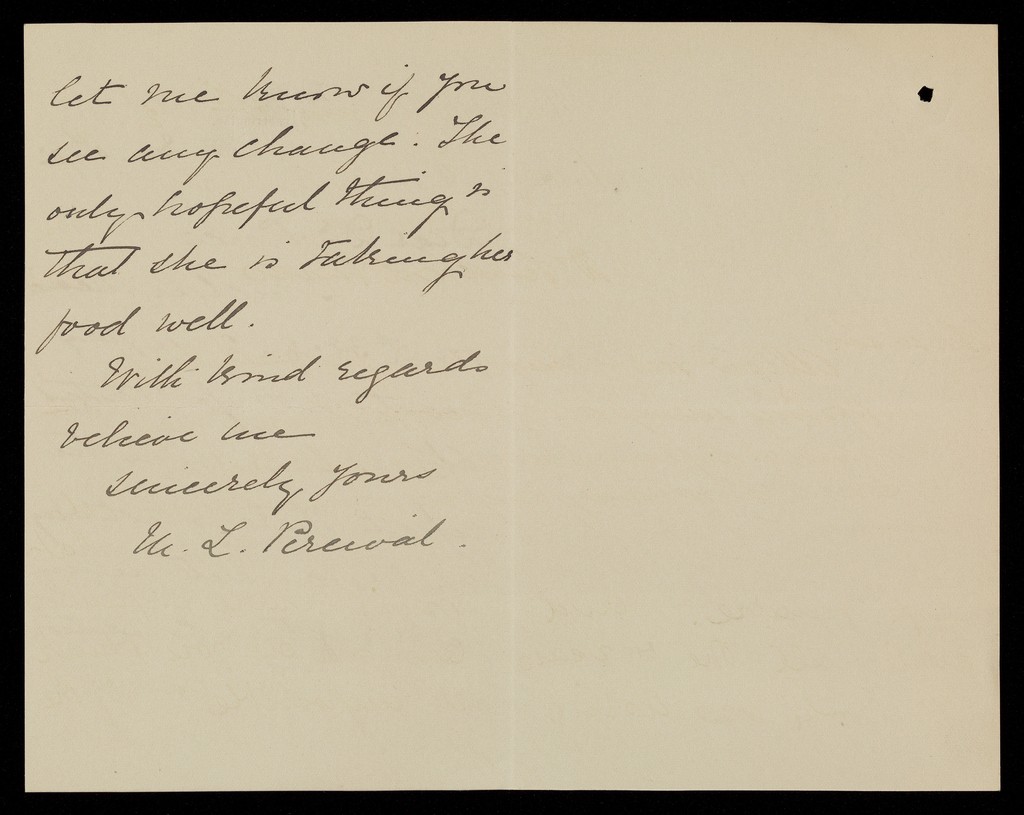 let me know if you
see any change. The
only hopeful thing is
that she is taking her
food well.
With kind regards
believe me
sincerely yours
M. L. Percival.